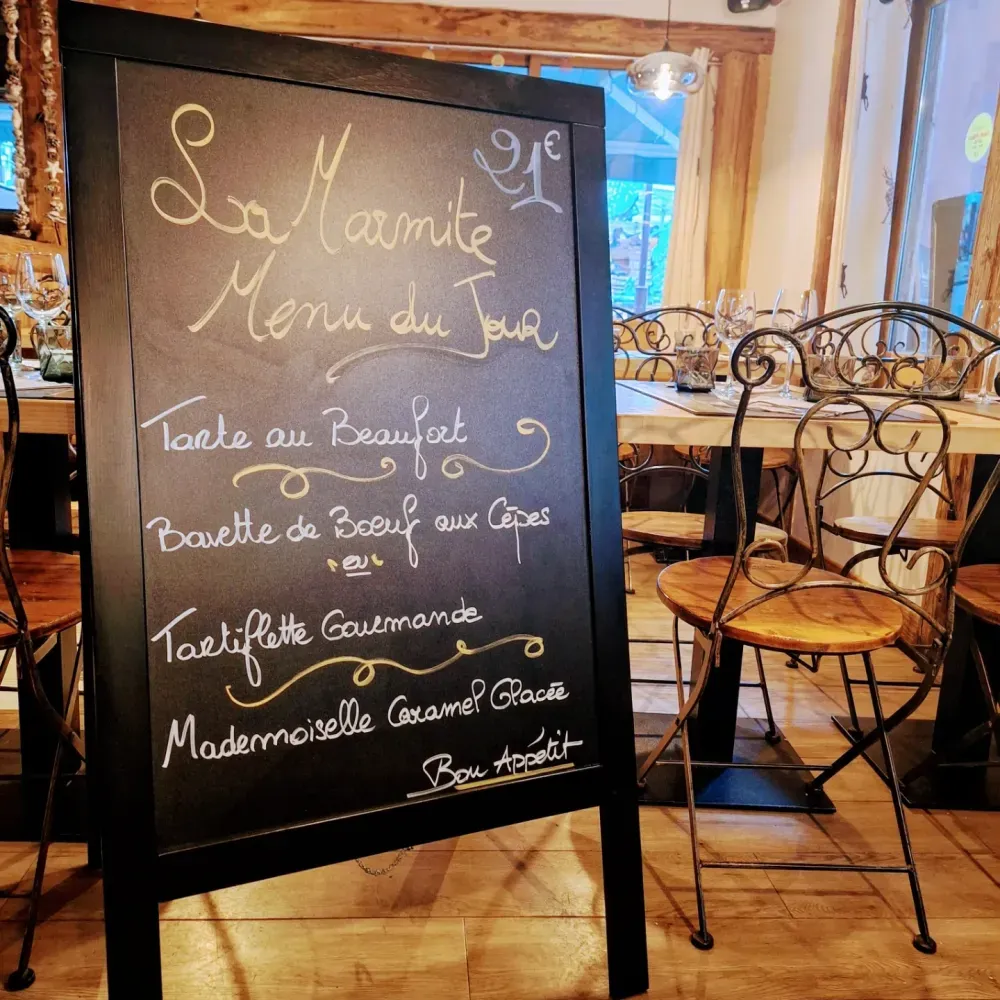 La Marmite
21€
Menu du Jour
Tarte au Beaufort
Bavette de Boeuf aux Cèpes
ou
Tartiflette Gourmande
Mademoiselle Caramel Glacée
Bon Appétit